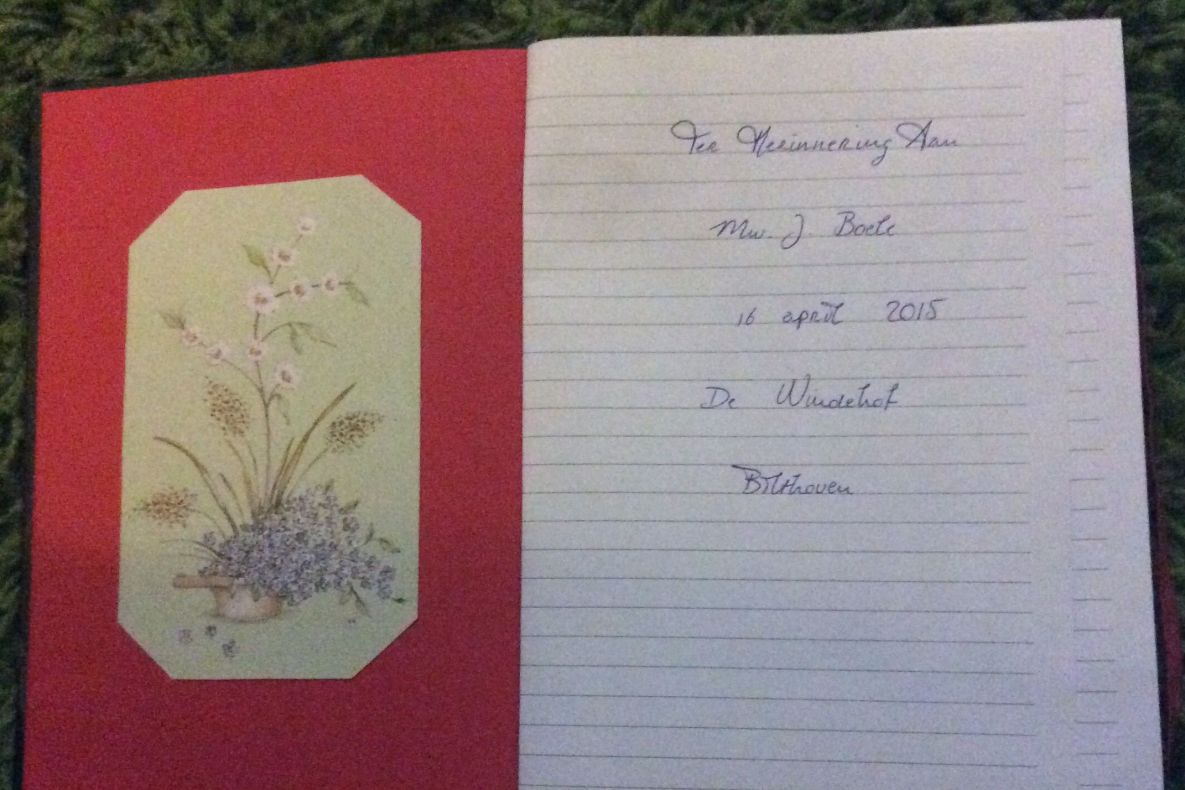 Ter Herinnering Aan
Mw. J Boele
16 april 2015
De Windehof
Bilthoven